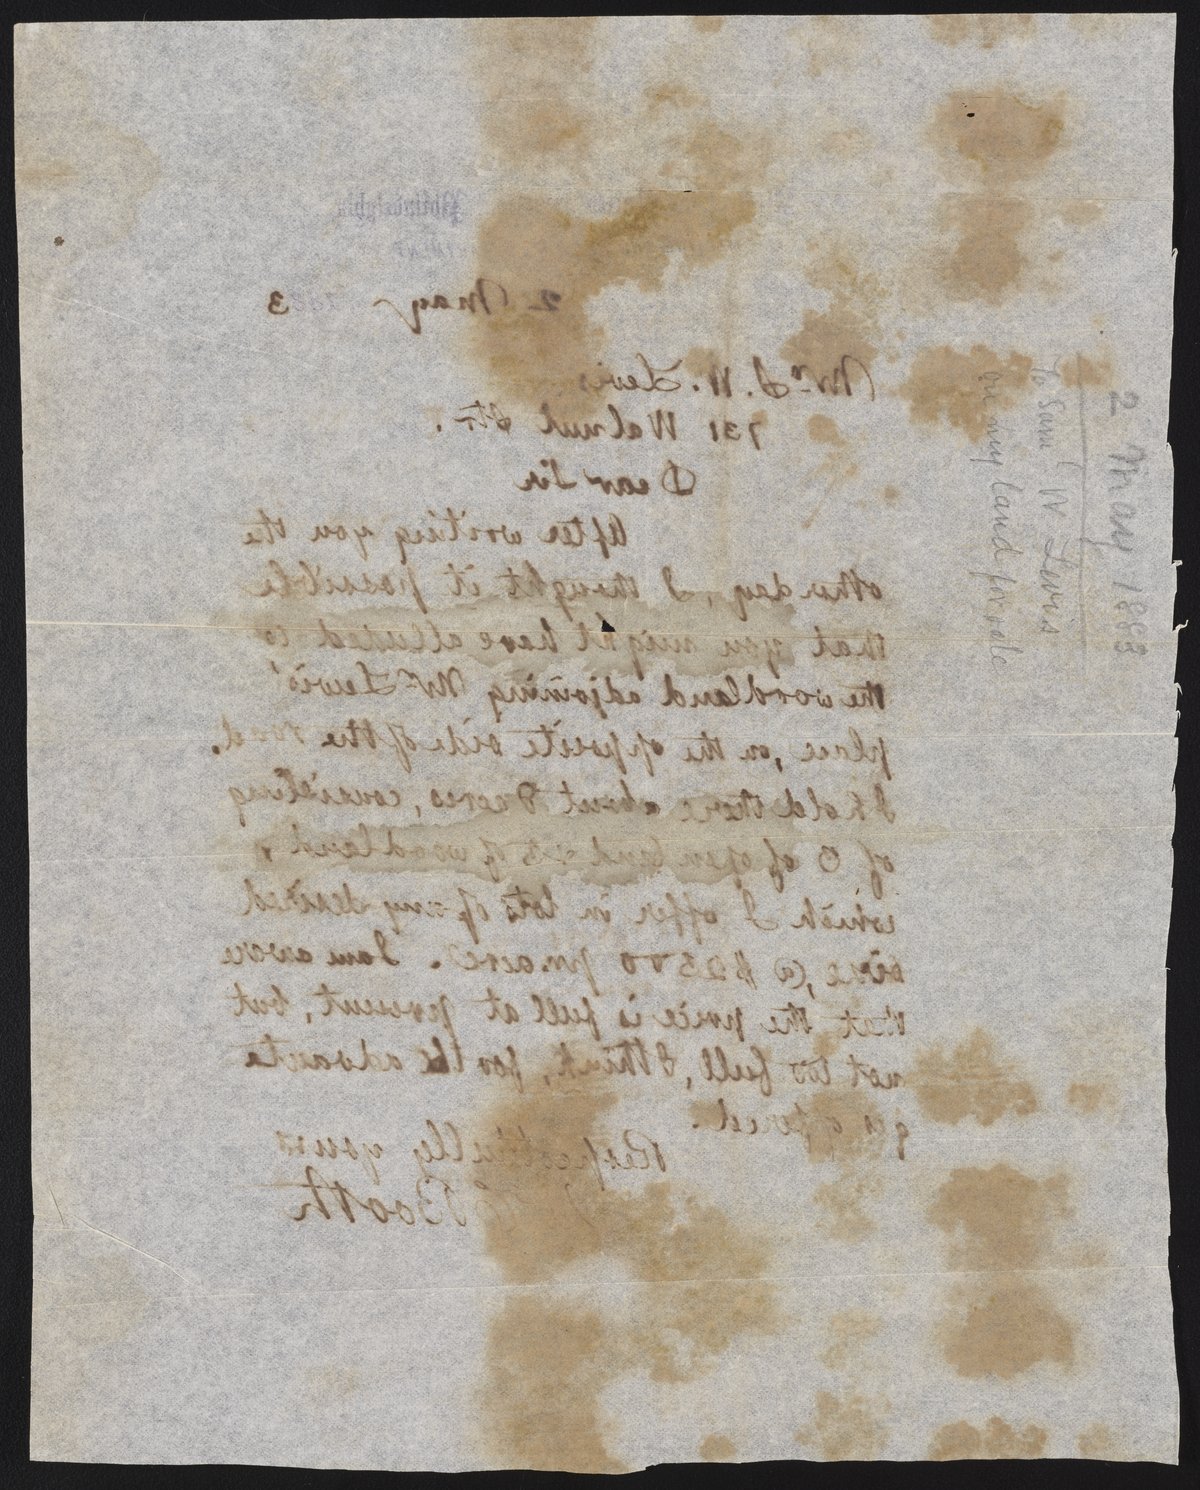 Philadelphia
2 May 1883
Mr. S. W. Lewis
731 Walnut Str.
Dear Sir
After writing you the
other day, I thought it possible
that you might have alluded to
the woodland adjoining Mr Lewis'
place, on the opposite side of the road.
I hold there about 8 acres, consisting
of 3 of open land & 5 of woodland,
which I offer in lots of any desired
size, @ $2500 pr. acre. I am aware
that the price is full at present, but,
not too full, I think, for the advanta
ges offered.
Respectfully yours
Booth
2 May 1883
To Saml W Lewis
on my land for sale